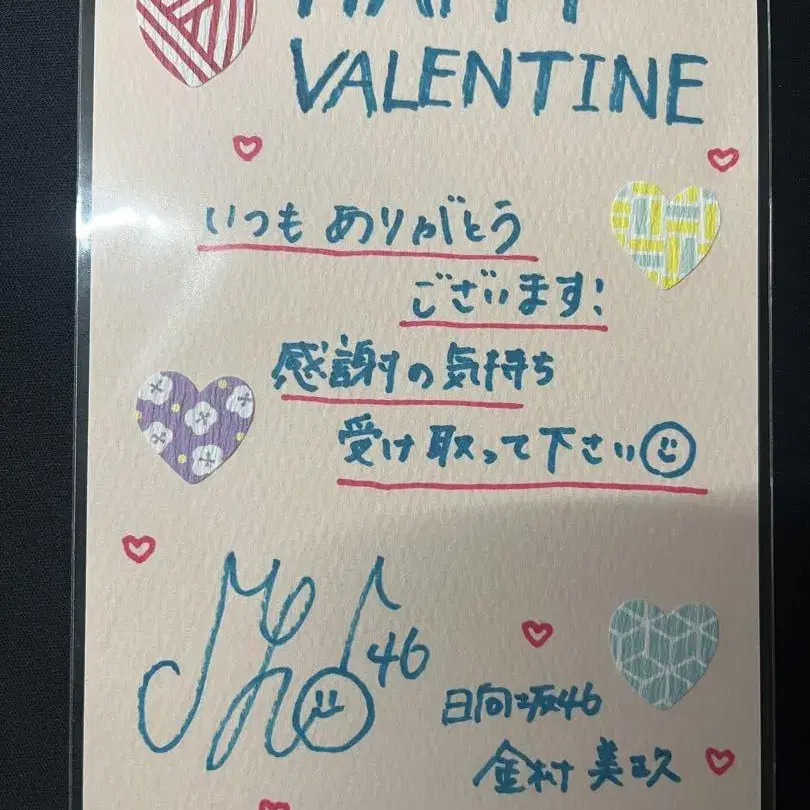 HAPPY
VALENTINE
いつも ありがとう
ございます!
感謝の気持ち
受け取って下さい
46
日向坂46
金村 美玖